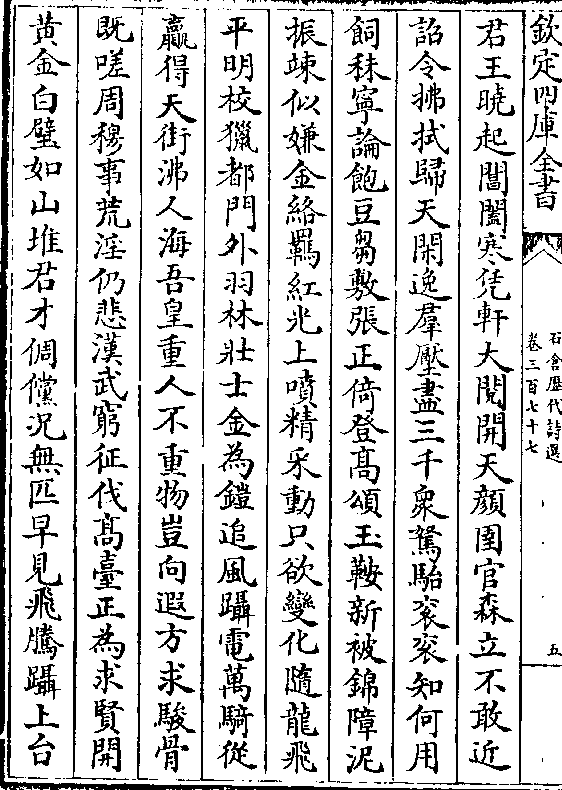 欽定四庫全書
石倉歷代詩選
卷三百七十七
五
君王曉起閶闔寒凭軒大閱開天顔圉官森立不敢近
詔令拂拭歸天閑逸羣壓盡三千衆駑駘衮衮知何用
飼秣寧論飽豆芻敷張正倚登髙頌玉鞍新被錦障泥
振竦似嫌金絡羈紅光上噴精采動只欲變化隨龍飛
平明校獵都門外羽林壯士金為鎧追風躡電萬騎從
贏得天街沸人海吾皇重人不重物豈向遐方求駿骨
既嗟周穆事荒淫仍悲漢武窮征伐髙臺正為求賢開
黄金白璧如山堆君才倜儻況無匹早見飛騰躡上台